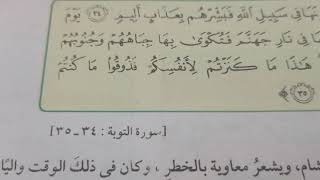 نَهَا فِي سَبِيلِ ٱللَّهِ فَبَشِّرْهُم بِعَذَابٍ أَلِيمٍ ٣٤ يَوْمَ
فِي نَارِ جَهَنَّمَ فَتُكْوَىٰ بِهَا جِبَاهُهُمْ وَجُنُوبُهُمْ
هَٰذَا مَا كَنَزْتُمْ لِأَنفُسِكُمْ فَذُوقُوا۟ مَا كُنتُمْ
٣٥
[سورة التوبة : ٣٤ - ٣٥]
شام، ويشعرُ معاوية بالخطرِ ، وكان في ذلكَ الوقت